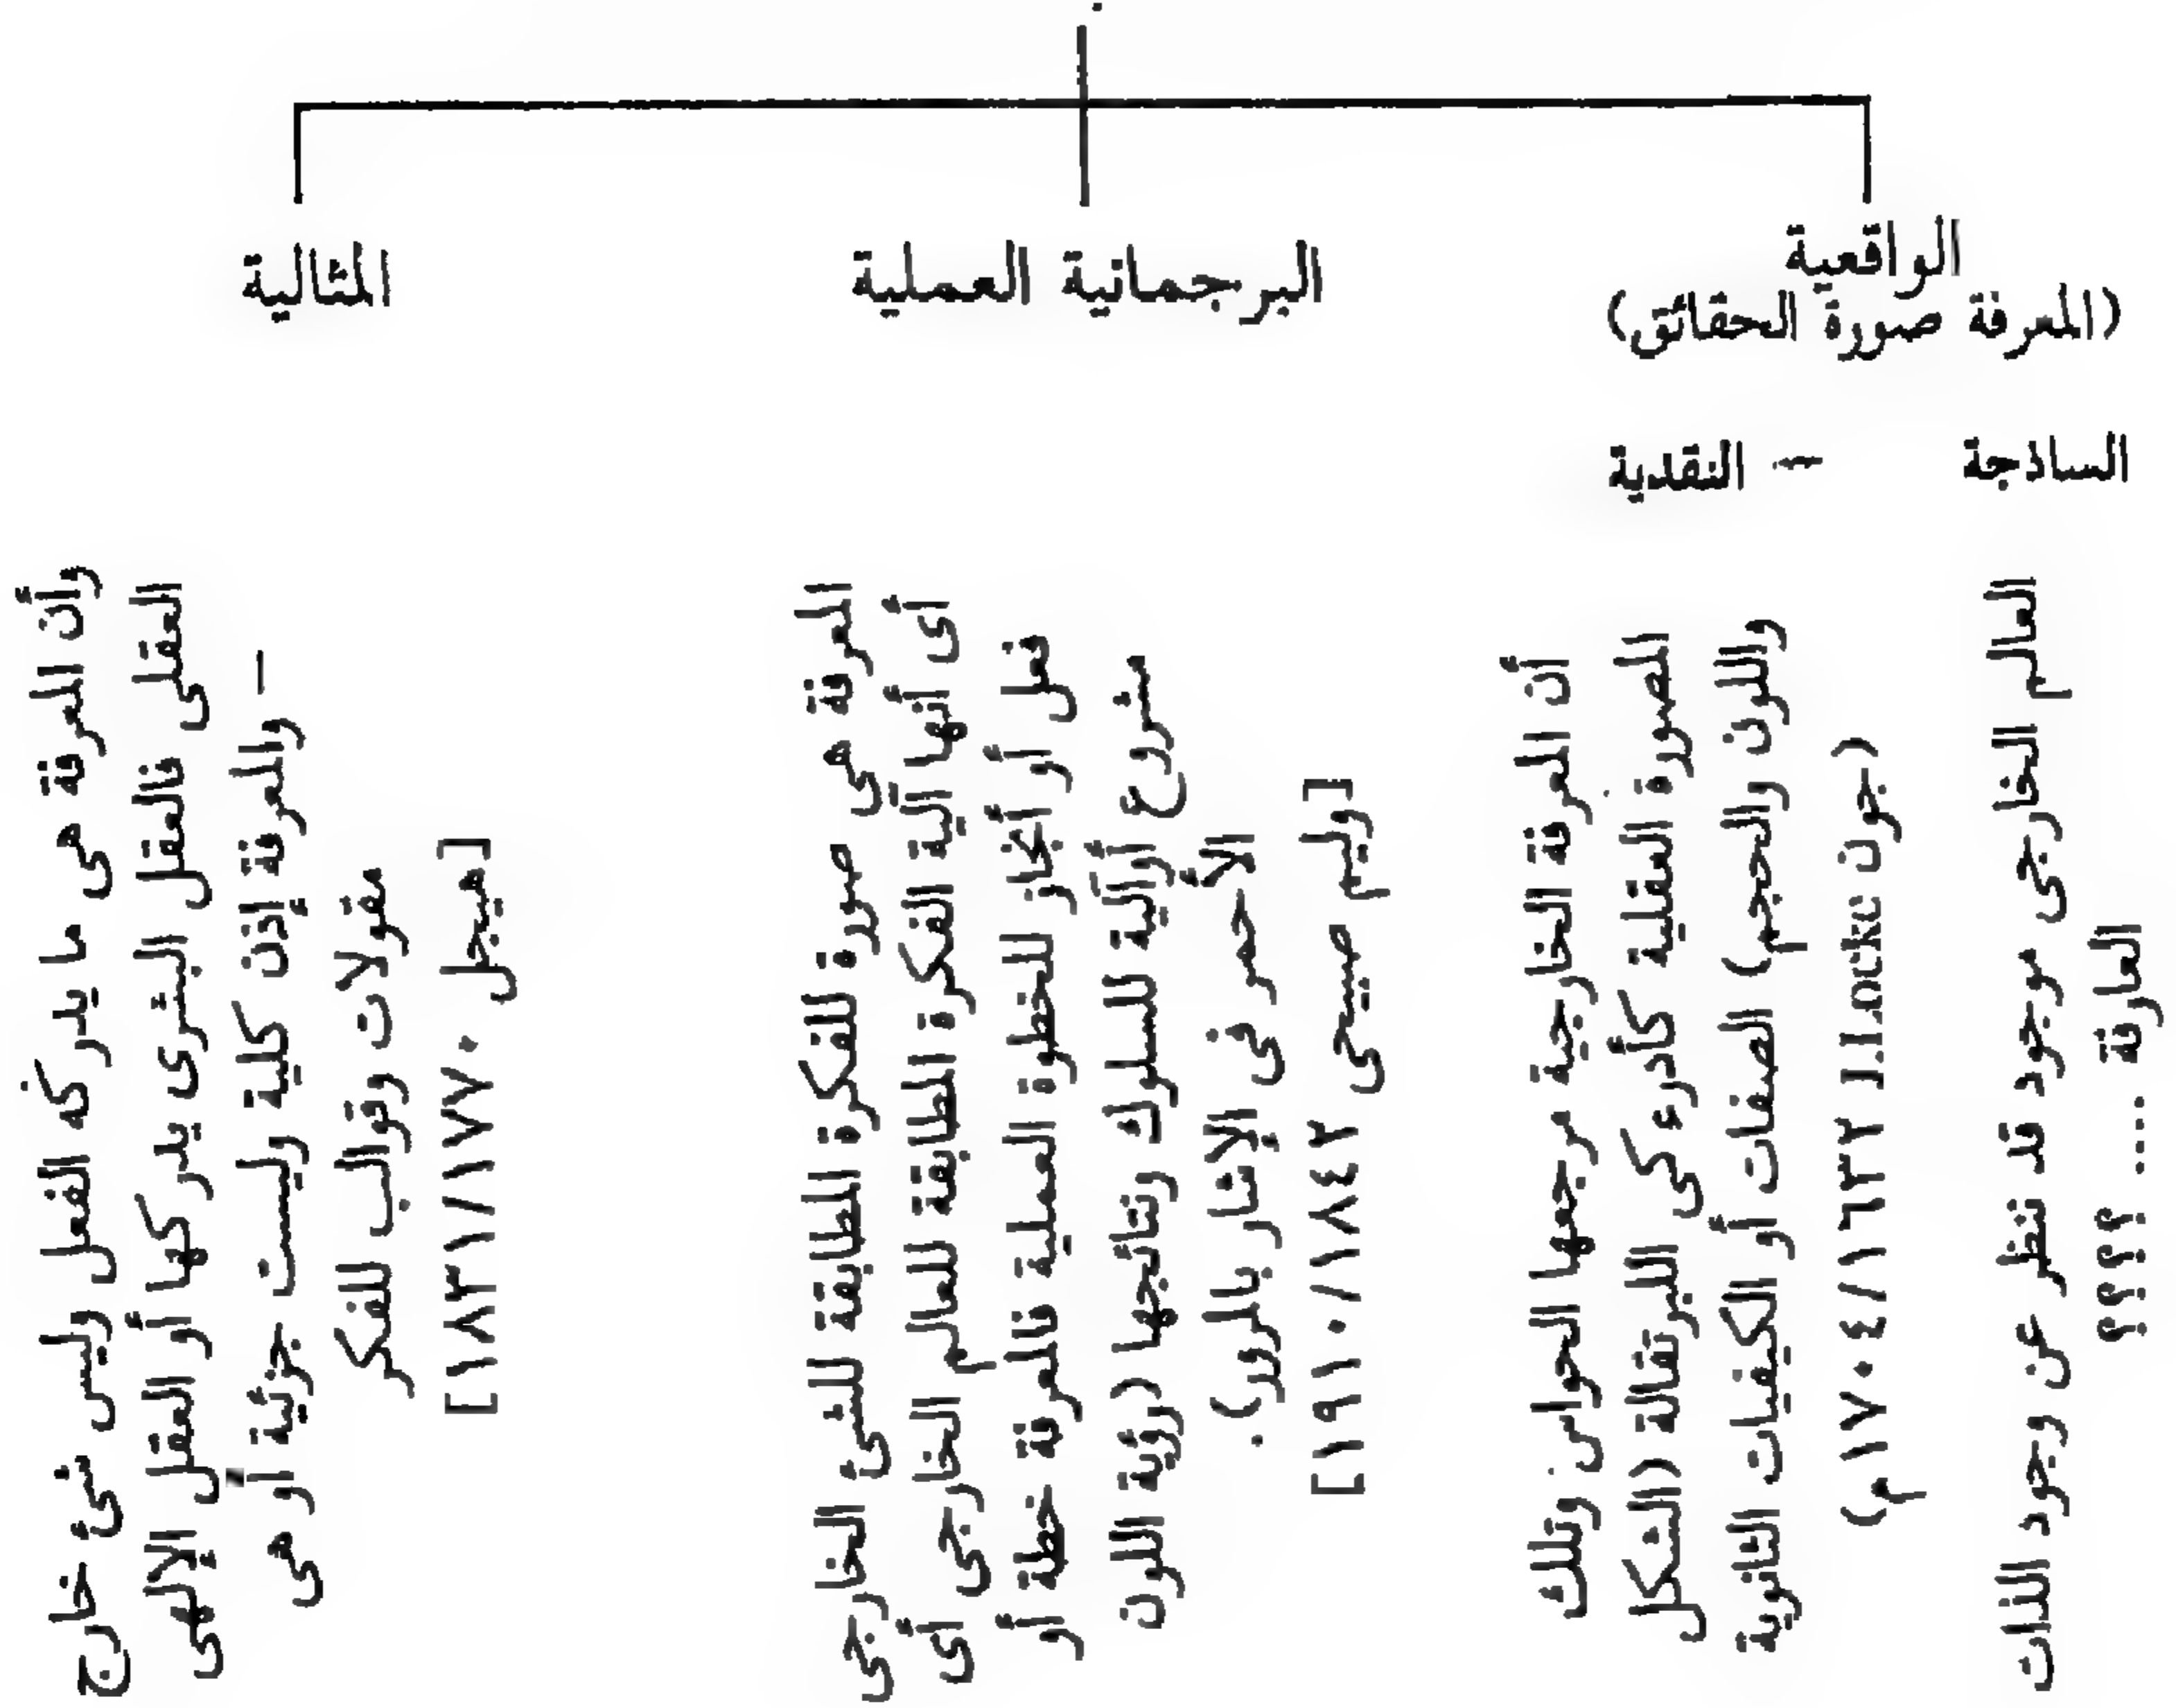 الواقعية
(المعرفة صورة الحقائق)
البرجمانية العملية
المثالية
الساذجة – النقدية
العالم الخارجى موجود قد تنظر عن وجود الذات
العارفة .... ؟؟؟؟
أن المعرفة الخارجية مرجعها الحواس وتلك
الصورة العقلية كأدرء كى للبرتقالة (الشكل
واللون والحجم) الصفات أو الكيفيات الثانوية
(جون J.Locke ١٦٣٢/١٧٠٤م)
المعرفة هى صورة للفكرة المطابقة للشئ الخارجى
أى أنها آلية الفكرة المطابقة للعالم الخارجى أى
فعل أو أنجاز للخطوة العملية فالمعرفة خطة أو
مشروع أوآلية للسلوك ونتائجها (رؤية اللون
الأحمر فى الإنذار بالمرور).
[وليم صيمى ١٨٤٢/١٩١٠]
وأن المعرفة هى ما يدركه الفعل وليس شئ خارج
العقلى فالعقل البشرى يدركها أو العقل الإلهى
– والمعرفة إذن كلية وليست جزئية أو هى
مقولات وقوالب للفكر
[هيجل ١٧٧٠/١٨٣١]